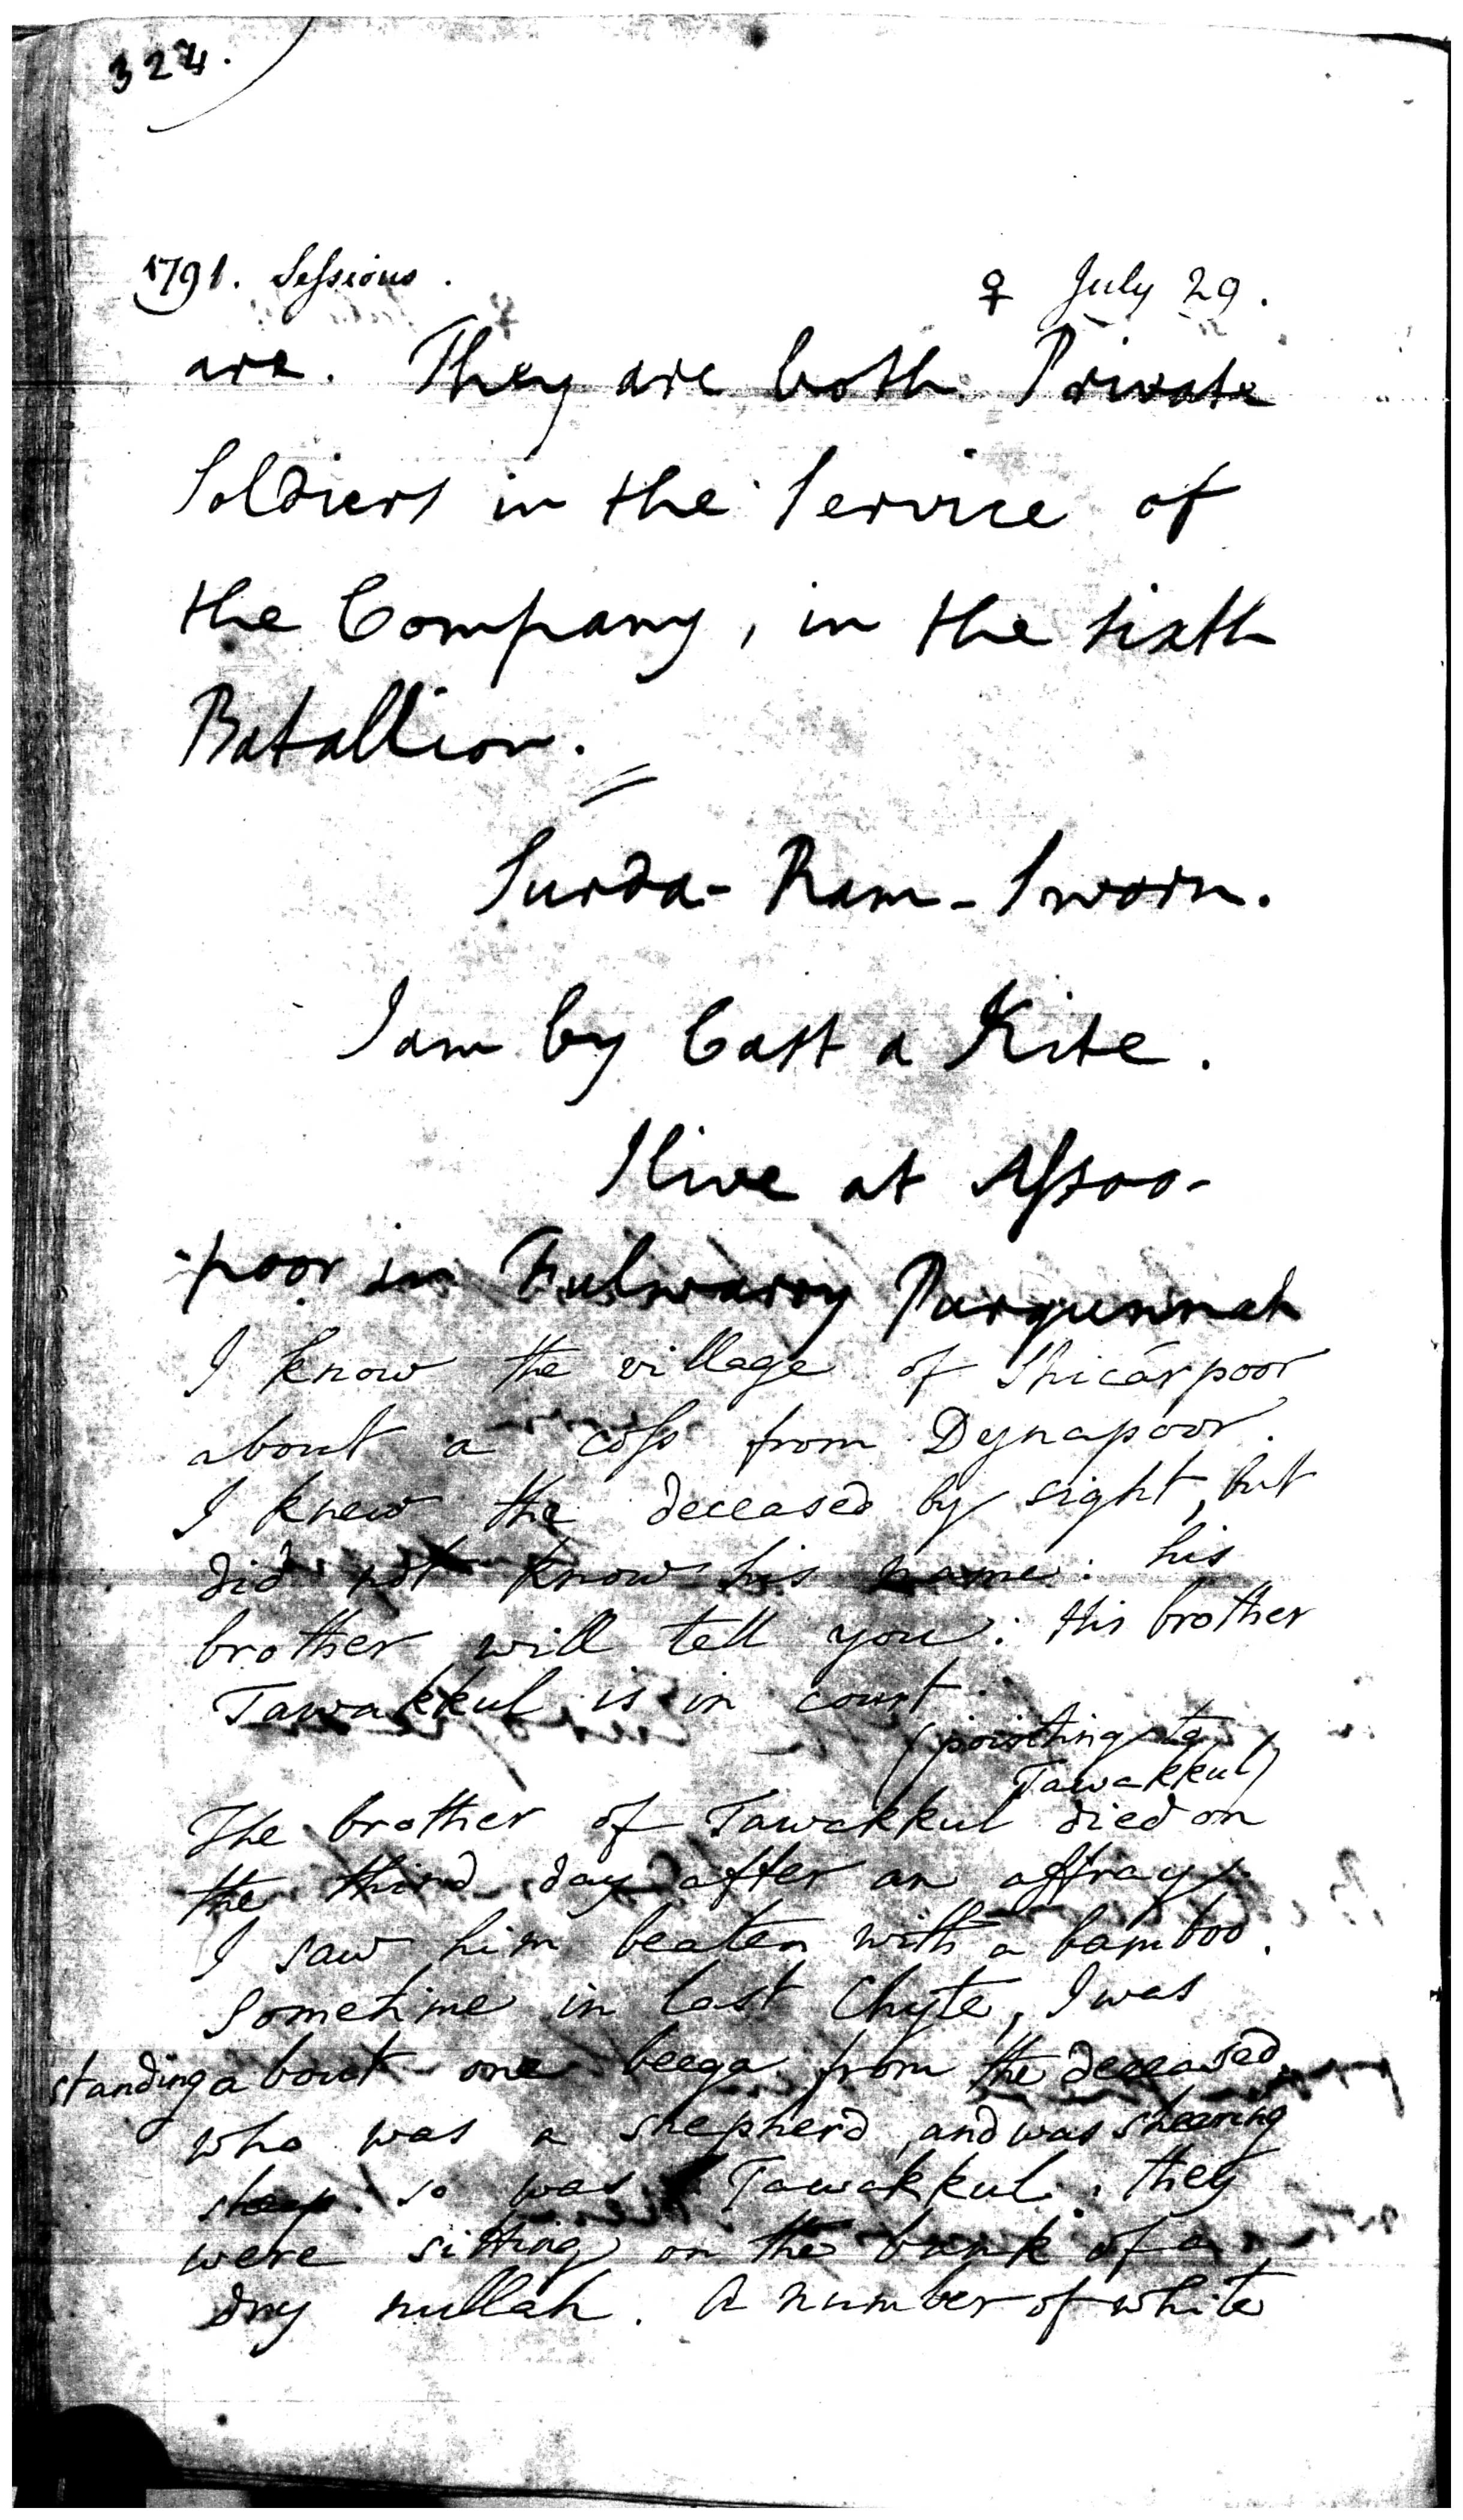 324.
1791. Sessions. ♀ July 29.
are. They are both Private
Soldiers in the Service of
the Company, in the sixth
Batallion.
Surda-Ram-Sworn.
I am by Cast a Kite.
I live at Assoo-
-poor in Fulwarry Purgunnah
I know the village of Shicárpoor
about a coss from Dynapoor.
I knew the deceased by sight, but
did not know his name: his
brother will tell you: His brother
Tawakkul is in court.
(pointing to
Tawakkul)
The brother of Tawakkul died on
the third day after an affray.
I saw him beaten with a bamboo.
Sometime in last Chyte, I was
standing about one beega from the deceased,
who was a shepherd, and was shearing
sheep: so was Tawakkul: they
were sitting on the bank of a
dry nullah. A number of white